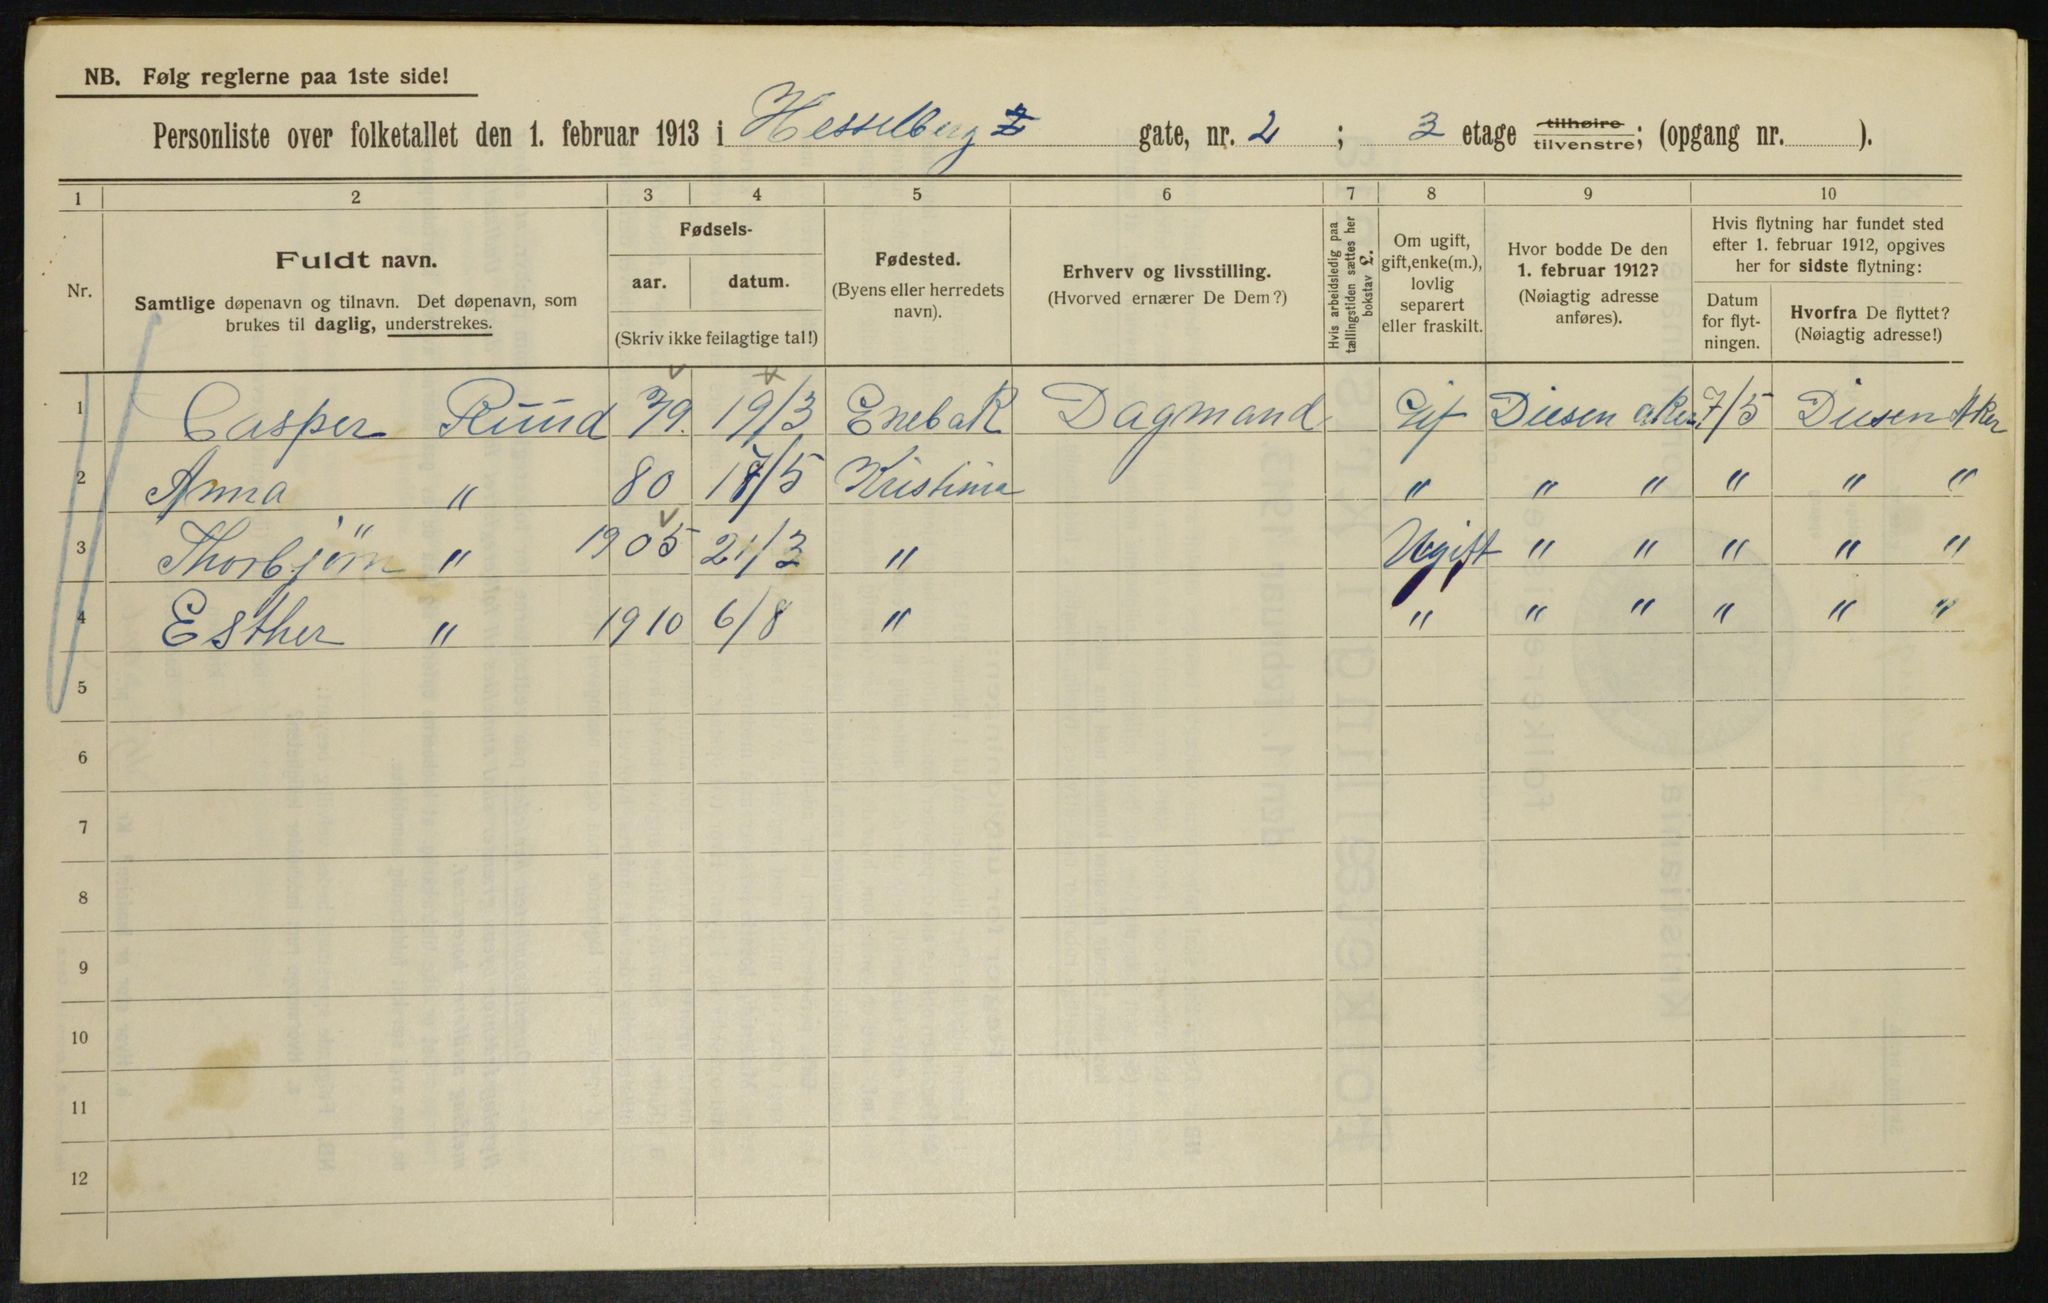 NB. Følg reglerne paa 1ste side!
Personliste over folketallet den 1. februar 1913 i Hesselberg gate, nr. 2 ; 3 etage tilhøire tilvenstre; (opgang nr. ).
1 2 3 4 5 6 7 8 9 10
Nr.
Fuldt navn.
Samtlige døpenavn og tilnavn. Det døpenavn, som
brukes til daglig, understrekes.
Fødsels-
aar. datum.
(Skriv ikke feilagtige tal!)
Fødested.
(Byens eller herredets
navn).
Erhverv og livsstilling.
(Hvorved ernærer De Dem?)
Hvis arbeidsledig paa
tællingstiden sættes her
bokstav L.
Om ugift,
gift, enke(m.),
lovlig
separert
eller fraskilt.
Hvor bodde De den
1. februar 1912?
(Nøiagtig adresse
anføres).
Hvis flytning har fundet sted
efter 1. februar 1912, opgives
her for sidste flytning:
Datum
for flyt-
ningen.
Hvorfra De flyttet?
(Nøiagtig adresse!)
1 Casper Ruud 79. 19/3 Enebak Dagmand Gif Diesen aker 7/5 Diesen Aker
2 Anna " 80 /5 Kristiania " " " " " "
3 Thorbjörn " 1905 21/3 " Ugift " " " " "
4 Esther " 1910 6/8 " " " " " " "
5
6
7
8
9
10
11
12